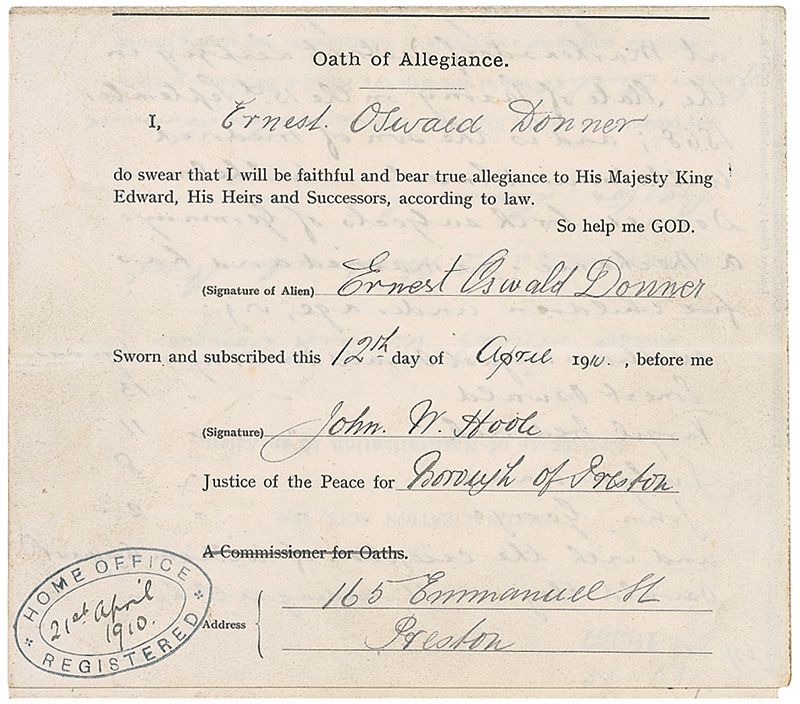 Oath of Allegiance.
I, Ernest. Oswald Donner
do swear that I will be faithful and bear true allegiance to His Majesty King
Edward, His Heirs and Successors, according to law.
So help me GOD.
(Signature of Alien) Ernest Oswald Donner
Sworn and subscribed this 12th day of April 1910. , before me
(Signature) John. W. Hoole
Justice of the Peace for Borough of Preston
A Commissioner for Oaths.
Address 165 Emmanuel St
Preston
HOME OFFICE
21st April
1910.
REGISTERED